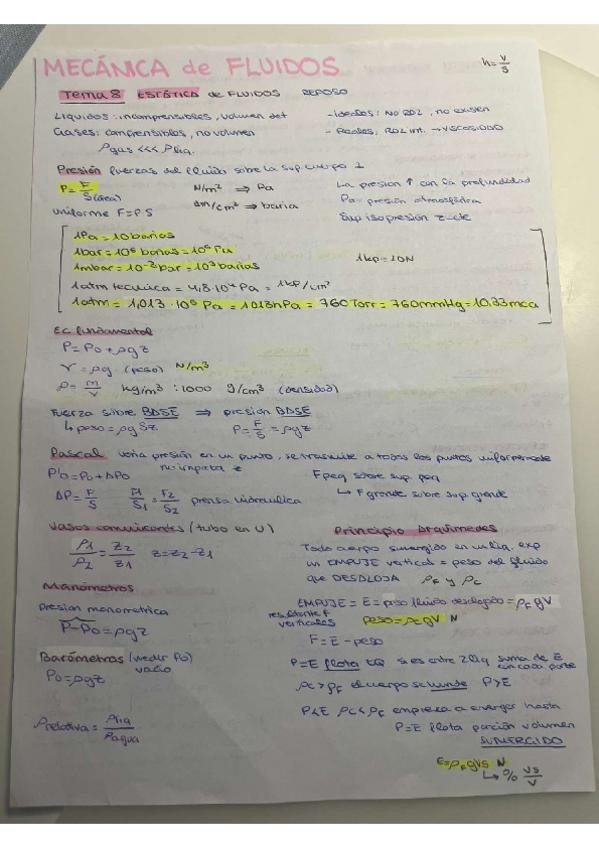 MECÁNICA de FLUIDOS
h=V/S
Tema 8 ESTÁTICA de FLUIDOS REPOSO
Líquidos: incomprensibles, volumen det
-Ideales: NO ROZ, no existen
Gases: comprensibles, no volumen
- Reales, ROZ int. → VISCOSIDAD
ρgas <<< ρliq.
Presión fuerzas del fluido sobre la sup. cuerpo ⊥
P=F/S (área)
N/m² ⇒ Pa
La presion ↑ con la profundidad
dm/cm² → baria
Pa= presión atmosférica
uniforme F=P·S
Sup isopresión z=cte
1Pa=10barias
1bar=10⁶barias=10⁵Pa
1kp=10N
1mbar=10⁻³bar=10³barias
1atm tecnica=9,8·10⁴Pa=1kp/cm²
1atm=1,013·10⁵Pa=1013hPa=760Torr=760mmHg=10.33mca
Ec. fundamental
P=P₀+ρgz
γ=ρg (peso) N/m³
ρ=m/V kg/m³ :1000 g/cm³ (densidad)
Fuerza sobre BASE ⇒ presión BASE
↳ peso=ρgSz P=F/S=ρgz
Pascal varia presión en un punto, se trasmite a todos los puntos uniformemente
P'₀=P₀+ΔP₀ no importa z
F peq sobre sup. peq
ΔP=F/S F₁/S₁=F₂/S₂ prensa hidraulica
↳ F grande sobre sup. grande
Vasos comunicantes (tubo en U)
ρ₁/ρ₂=z₂/z₁ z=z₂-z₁
Principio Arquímedes
Todo cuerpo sumergido en un liq. exp
un EMPUJE vertical = peso del fluido
que DESALOJA ρF y ρc
Manómetros
presion manometrica
P-P₀=ρgz
EMPUJE = E = peso fluido desalojado = ρF gV
resultante f verticales
peso=ρc gV N
F=E-peso
Barómetros (medir P₀)
vacío
P₀=ρgz
P=E flota si es entre 2 liq suma de E
con cada parte
ρc>ρF el cuerpo se hunde P>E
P<E ρc<ρF empieza a emerger hasta
ρrelativa=ρliq/ρagua
P=E flota porción volumen
SUMERGIDO
E=ρF gVs N
↳ % Vs/V